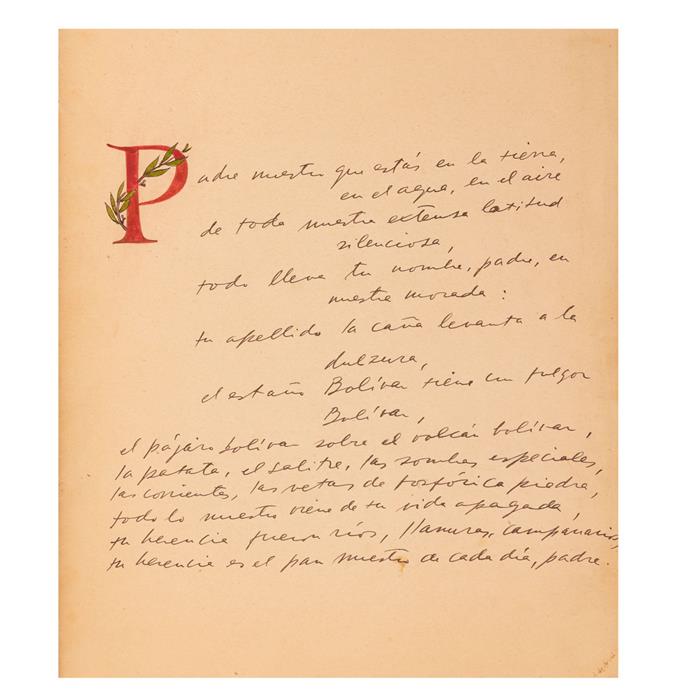 Padre nuestro que estás en la tierra,
en el agua, en el aire
de toda nuestra extensa latitud
silenciosa,
todo lleva tu nombre, padre, en
nuestra morada:
tu apellido la caña levanta a la
dulzura,
el estaño Bolívar tiene un fulgor
Bolívar,
el pájaro bolívar sobre el volcán bolívar,
la patata, el salitre, las sombras especiales,
las corrientes, las vetas de fosfórica piedra,
todo lo nuestro viene de tu vida apagada,
tu herencia fueron ríos, llanuras, campanarios,
tu herencia es el pan nuestro de cada día, padre.